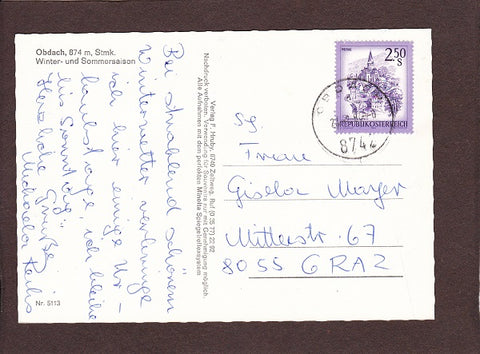 Obdach, 874 m, Stmk.
Winter- und Sommersaison
Bei strahlend schönem
Winterwetter verbringe
ich hier einige Ur-
laubstage, ich bleibe
bis Sonntag.
Herzliche Grüße
Michaela
Nr. 5113
Verlag F. Hruby, 8740 Zeltweg, Ruf (0 35 77) 22 92
Nachdruck verboten. Verwendung für Souvenirs nur mit Genehmigung möglich.
Alle Aufnahmen mit dem perfekten Minolta Spiegelreflexsystem
2.50
S
REPUBLIK ÖSTERREICH
8742
Sg.
Frau
Gisela Mayer
Mitterstr. 67
8055 GRAZ